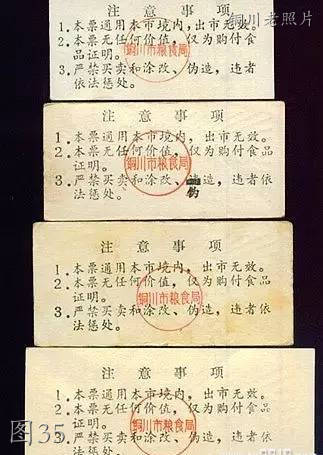 铜川老照片
注意事项
1.本票通用本市境内，出市无效。
2.本票无任何价值，仅为购付食
品证明。
3.严禁买卖和涂改、伪造，违者
依法惩处。
铜川市粮食局
注意事项
1.本票通用本市境内，出市无效。
2.本票无任何价值，仅为购付食品
证明。
3.严禁买卖和涂改、造，违者依
法惩处。
铜川市粮食局
注意事项
1.本票通用本市境内，出市无效。
2.本票无任何价值，仅为购付食品
证明。
3.严禁买卖和涂改、伪造，违者
依法惩处。
铜川市粮食局
注意事项
1.本票通用本市境内，出市无效。
2.本票无任何价值，仅为购付食品
证明。
3.严禁买卖和涂改、伪造，违者
依法惩处。
铜川市粮食局
图35